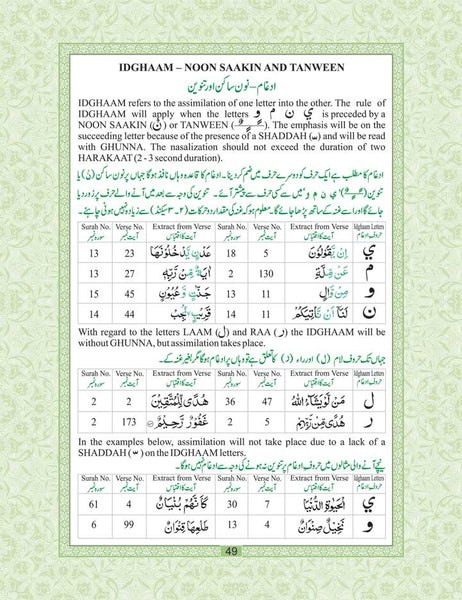 IDGHAAM – NOON SAAKIN AND TANWEEN
ادغام – نون ساکن اور تنوین
IDGHAAM refers to the assimilation of one letter into the other. The rule of
IDGHAAM will apply when the letters ي ن م و is preceded by a
NOON SAAKIN (نْ) or TANWEEN ( ـًـٍـٌ ). The emphasis will be on the
succeeding letter because of the presence of a SHADDAH ( ّ ) and will be read
with GHUNNA. The nasalization should not exceed the duration of two
HARAKAAT (2 - 3 second duration).
ادغام کا مطلب ہے ایک حرف کو دوسرے حرف میں ضم کر دینا۔ ادغام کا قاعدہ وہاں نافذ ہوگا جہاں پر نون ساکن (نْ) یا
تنوین ( ـًـٍـٌ ) ’ي ن م و‘ میں سے کسی حرف سے پیشتر آئے۔ تنوین کی وجہ سے بعد میں آنے والے حرف پر زور دیا
جائے گا اور اسے غنہ کے ساتھ پڑھا جائے گا۔ معلوم ہو کہ غنہ کی مقدار دو حرکات (۲ - ۳ سیکنڈ) سے زیادہ نہیں ہونی چاہئے۔
Surah No. Verse No. Extract from Verse Surah No. Verse No. Extract from Verse Idghaam Letters
سورہ نمبر آیت نمبر آیت کا اقتباس سورہ نمبر آیت نمبر آیت کا اقتباس حروف ادغام
13 23 عَدْنٍ يَّدْخُلُوْنَهَا 18 5 اِنْ يَّقُوْلُوْنَ ي
13 27 اٰيَةٌ مِّنْ رَّبِّهٖ 2 130 عَنْ مِّلَّةِ م
15 45 جَنّٰتٍ وَّعُيُوْنٍ 13 11 مِنْ وَّالٍ و
14 44 قَرِيْبٍ نُّجِبْ 14 11 لَنَاۤ اَنْ نَّاْتِيَكُمْ ن
With regard to the letters LAAM (ل) and RAA (ر) the IDGHAAM will be
without GHUNNA, but assimilation takes place.
جہاں تک حروف لام (ل) اور راء (ر) کا تعلق ہے تو وہاں پر ادغام ہوگا مگر بغیر غنہ کے۔
Surah No. Verse No. Extract from Verse Surah No. Verse No. Extract from Verse Idghaam Letters
سورہ نمبر آیت نمبر آیت کا اقتباس سورہ نمبر آیت نمبر آیت کا اقتباس حروف ادغام
2 2 هُدًى لِّلْمُتَّقِيْنَ 36 47 مَنْ لَّوْ يَشَآءُ اللّٰهُ ل
2 173 غَفُوْرٌ رَّحِيْمٌ 2 5 هُدًى مِّنْ رَّبِّهِمْ ر
In the examples below, assimilation will not take place due to a lack of a
SHADDAH ( ّ ) on the IDGHAAM letters.
نیچے آنے والی مثالوں میں حروف ادغام پر تنوین نہ ہونے کی وجہ سے ادغام نہیں ہوگا۔
Surah No. Verse No. Extract from Verse Surah No. Verse No. Extract from Verse Idghaam Letters
سورہ نمبر آیت نمبر آیت کا اقتباس سورہ نمبر آیت نمبر آیت کا اقتباس حروف ادغام
61 4 كَاَنَّهُمْ بُنْيَانٌ 30 7 الْحَيٰوةِ الدُّنْيَا ي
6 99 طَلْعِهَا قِنْوَانٌ 13 4 نَخِيْلٌ صِنْوَانٌ و
49